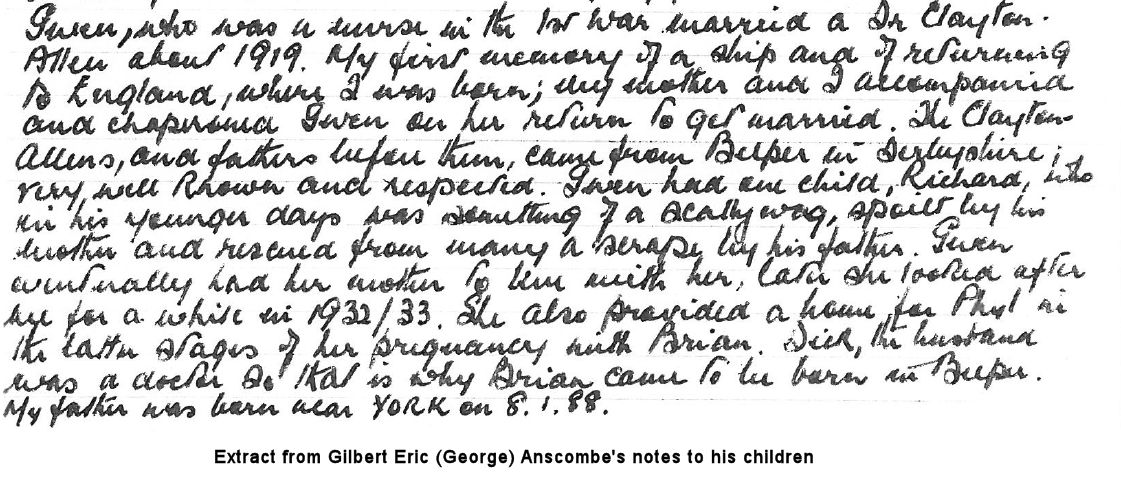 Gwen, who was a nurse in the 1st war married a Dr Clayton-
Allen about 1919. My first memory of a ship and of returning
to England, where I was born; my mother and I accompanied
and chaperoned Gwen on her return to get married. The Clayton-
Allens, and fathers before them, came from Belper in Derbyshire;
very well known and respected. Gwen had one child, Richard, who
in his younger days was something of a scallywag, spoilt by his
mother and rescued from many a scrape by his father. Gwen
eventually had her mother to live with her, later she looked after
me for a while in 1932/33. She also provided a home for Phyl in
the latter stages of her pregnancy with Brian. Dick, the husband
was a doctor so that is why Brian came to be born in Belper.
My father was born near YORK on 8.1.88.
Extract from Gilbert Eric (George) Anscombe's notes to his children